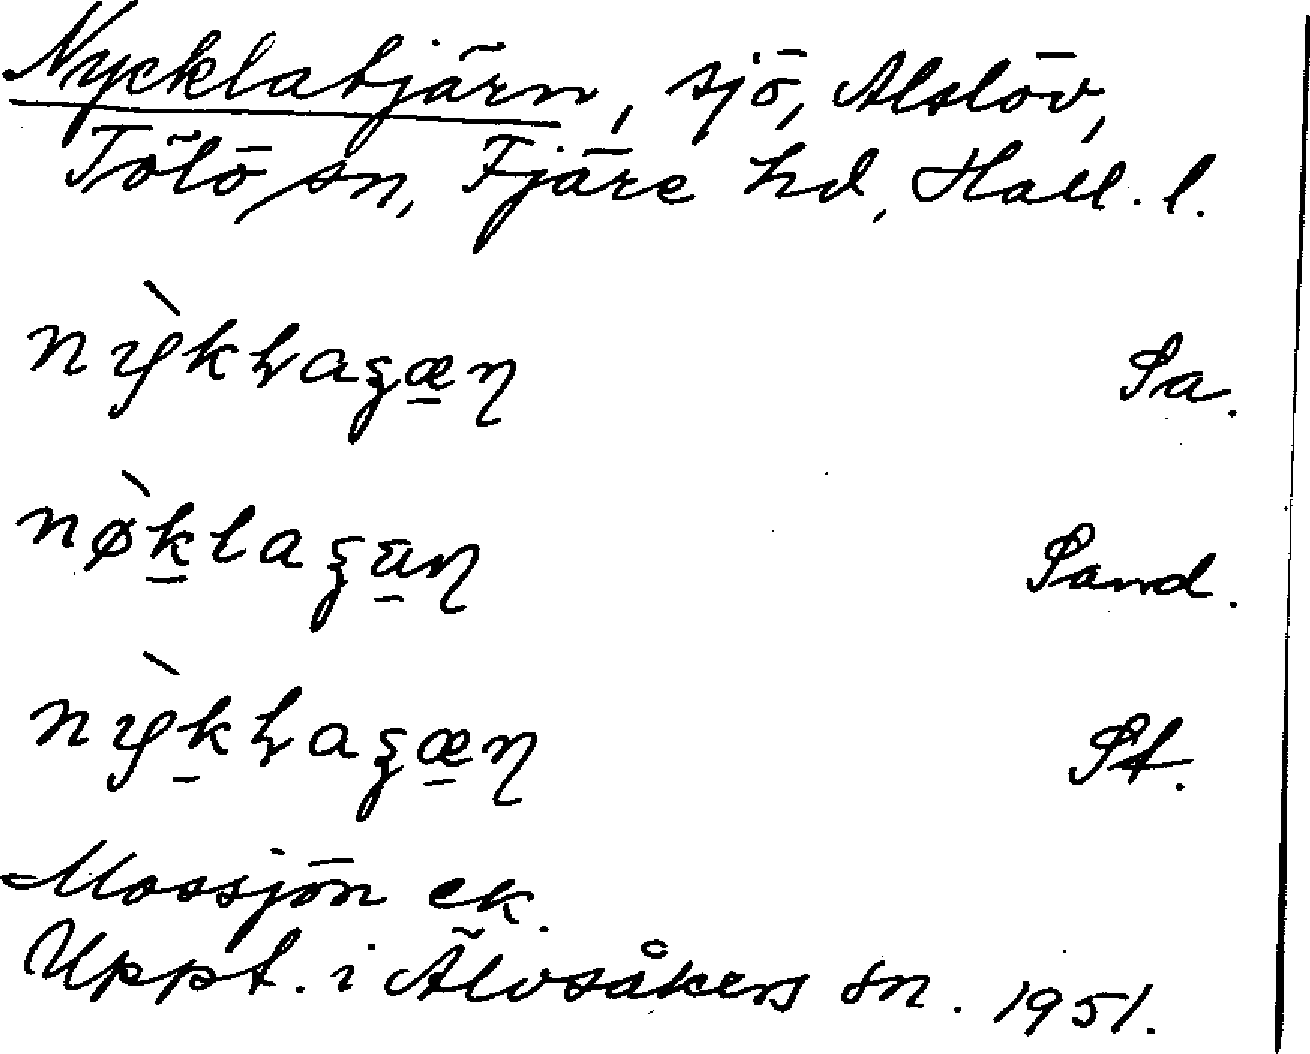 Nycklatjärn, sjö, Alslöv,
Tölö sn, Fjäre hd, Hall. l.
Sa.
Sand.
St.
Mossjön ek.
Uppt. i Älvsåkers sn. 1951.